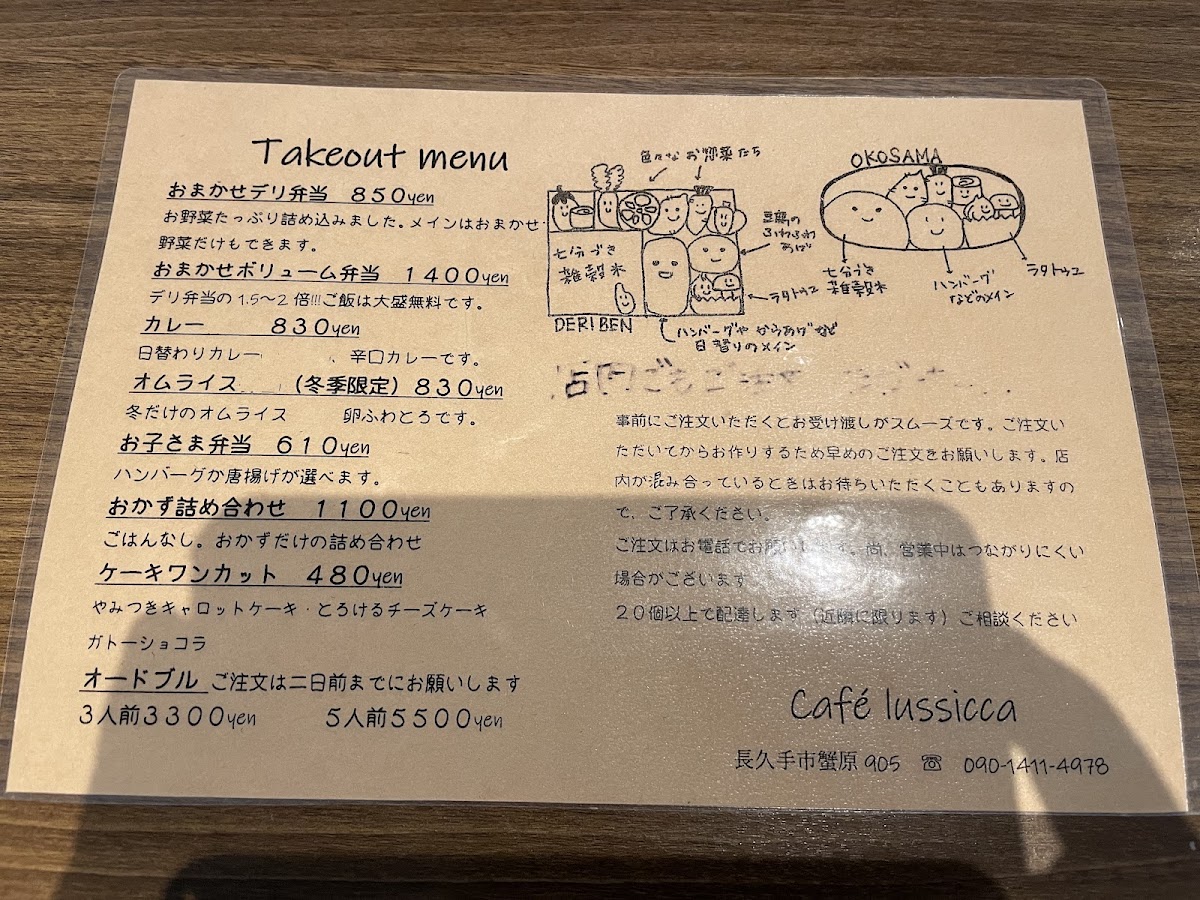 Takeout menu
おまかせデリ弁当 850yen
お野菜たっぷり詰め込みました。メインはおまかせ・
野菜だけもできます。
おまかせボリューム弁当 1400yen
デリ弁当の1.5〜2倍!!!ご飯は大盛無料です。
カレー 830yen
日替わりカレー 辛口カレーです。
オムライス (冬季限定) 830yen
冬だけのオムライス 卵ふわとろです。
お子さま弁当 610yen
ハンバーグか唐揚げが選べます。
おかず詰め合わせ 1100yen
ごはんなし。おかずだけの詰め合わせ
ケーキワンカット 480yen
やみつきキャロットケーキ・とろけるチーズケーキ
ガトーショコラ
オードブル ご注文は二日前までにお願いします
3人前3300yen 5人前5500yen
色々なお惣菜たち
七分づき
雑穀米
豆腐の
ふわふわ
あげ
ラタトゥユ
DERIBEN
ハンバーグや からあげなど
日替りのメイン
OKOSAMA
七分づき
雑穀米
ハンバーグ
などのメイン
ラタトゥユ
事前にご注文いただくとお受け渡しがスムーズです。ご注文い
ただいてからお作りするため早めのご注文をお願いします。店
内が混み合っているときはお待ちいただくこともありますの
で、ご了承ください。
ご注文はお電話でお願いします。尚、営業中はつながりにくい
場合がございます
20個以上で配達します(近隣に限ります)ご相談ください
Café lussicca
長久手市蟹原905 ☏ 090-1411-4978